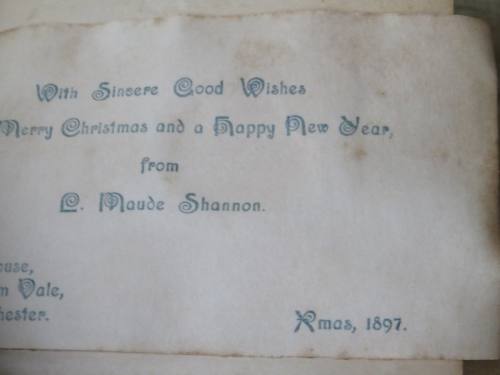 With Sincere Good Wishes
Merry Christmas and a Happy New Year,
from
L. Maude Shannon.
ouse,
m Vale,
hester.
Xmas, 1897.